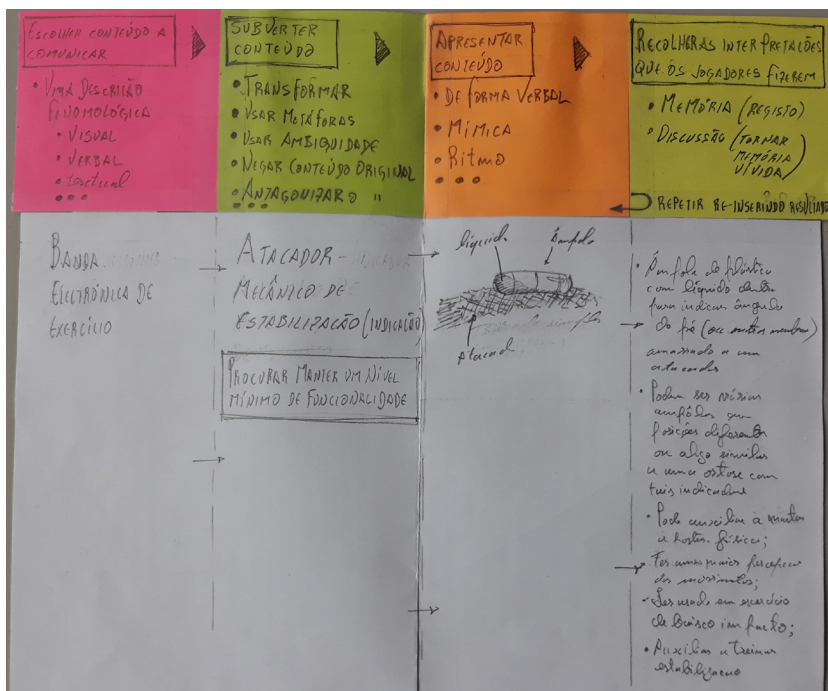 ESCOLHER CONTEÚDO A
COMUNICAR
• UMA DESCRIÇÃO
FENOMOLÓGICA
• VISUAL
• VERBAL
• textual
• • •
SUBVERTER
CONTEÚDO
• TRANSFORMAR
• USAR METÁFORAS
• USAR AMBIGUIDADE
• NEGAR CONTEÚDO ORIGINAL
• ANTAGONIZAR O "
• • •
APRESENTAR
CONTEÚDO
• DE FORMA VERBAL
• MÍMICA
• Ritmo
• • •
RECOLHER AS INTERPRETAÇÕES
QUE OS JOGADORES FIZEREM
• MEMÓRIA (REGISTO)
• DISCUSSÃO (TORNAR
MEMÓRIA
VÍVIDA)
REPETIR RE-INSERINDO RESULTADO
BANDA
ELECTRÓNICA DE
EXERCÍCIO
ATACADOR
MECÂNICO DE
ESTABILIZAÇÃO (INDICAÇÃO)
PROCURAR MANTER UM NÍVEL
MÍNIMO DE FUNCIONALIDADE
líquido
âmpola
Atacad
• Âmpola de plástico
com líquido dentro
para indicar ângulo
do pé (ou outro membro)
a um
atacador
• Podem ser várias
ampôlas em
posições diferentes
ou algo similar
a uma ortose com
tais indicadores
• Pode auxiliar a manter
a postura física;
Ter uma maior percepção
dos movimentos;
• Ser usado em exercício
de baixo impacto;
• Auxiliar a treinar
estabilização